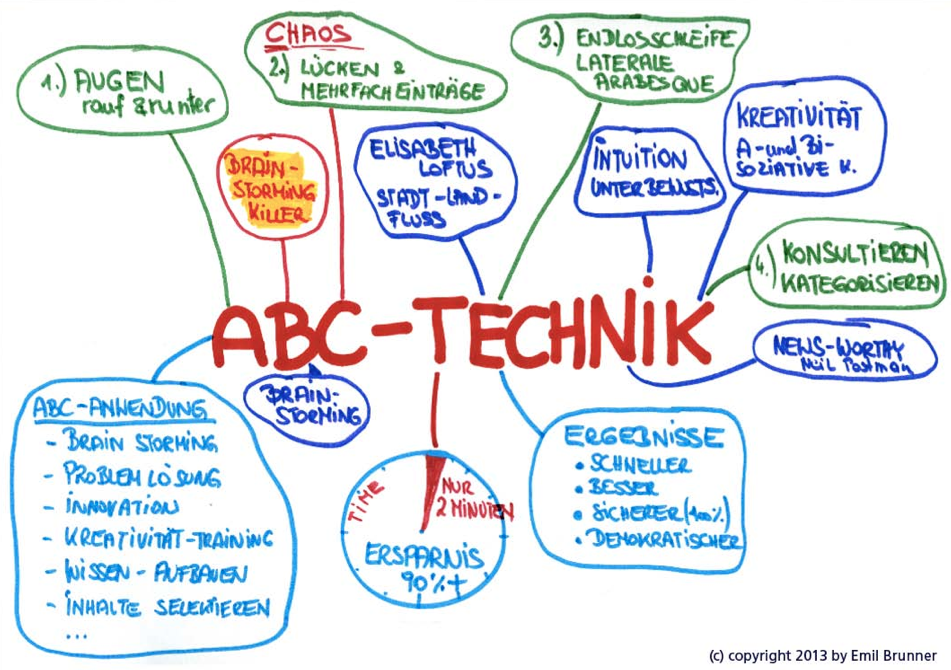 1.) AUGEN
rauf & runter
CHAOS
2.) LÜCKEN &
MEHRFACHEINTRÄGE
3.) ENDLOSSCHLEIFE
LATERALE
ARABESQUE
BRAIN-
STORMING
KILLER
ELISABETH
LOFTUS
STADT-LAND-
FLUSS
INTUITION
UNTERBEWUSTS.
KREATIVITÄT
A-und Bi-
SOZIATIVE K.
4.) KONSULTIEREN
KATEGORISIEREN
ABC-TECHNIK
NEWS-WORTHY
Neil Postman
BRAIN-
STORMING
ABC-ANWENDUNG
- BRAIN STORMING
- PROBLEM LÖSUNG
- INNOVATION
- KREATIVITÄT-TRAINING
- WISSEN-AUFBAUEN
- INHALTE SELEKTIEREN
...
TIME
NUR
2 MINUTEN
ERSPARNIS
90%+
ERGEBNISSE
• SCHNELLER
• BESSER
• SICHERER (100%)
• DEMOKRATISCHER
(c) copyright 2013 by Emil Brunner